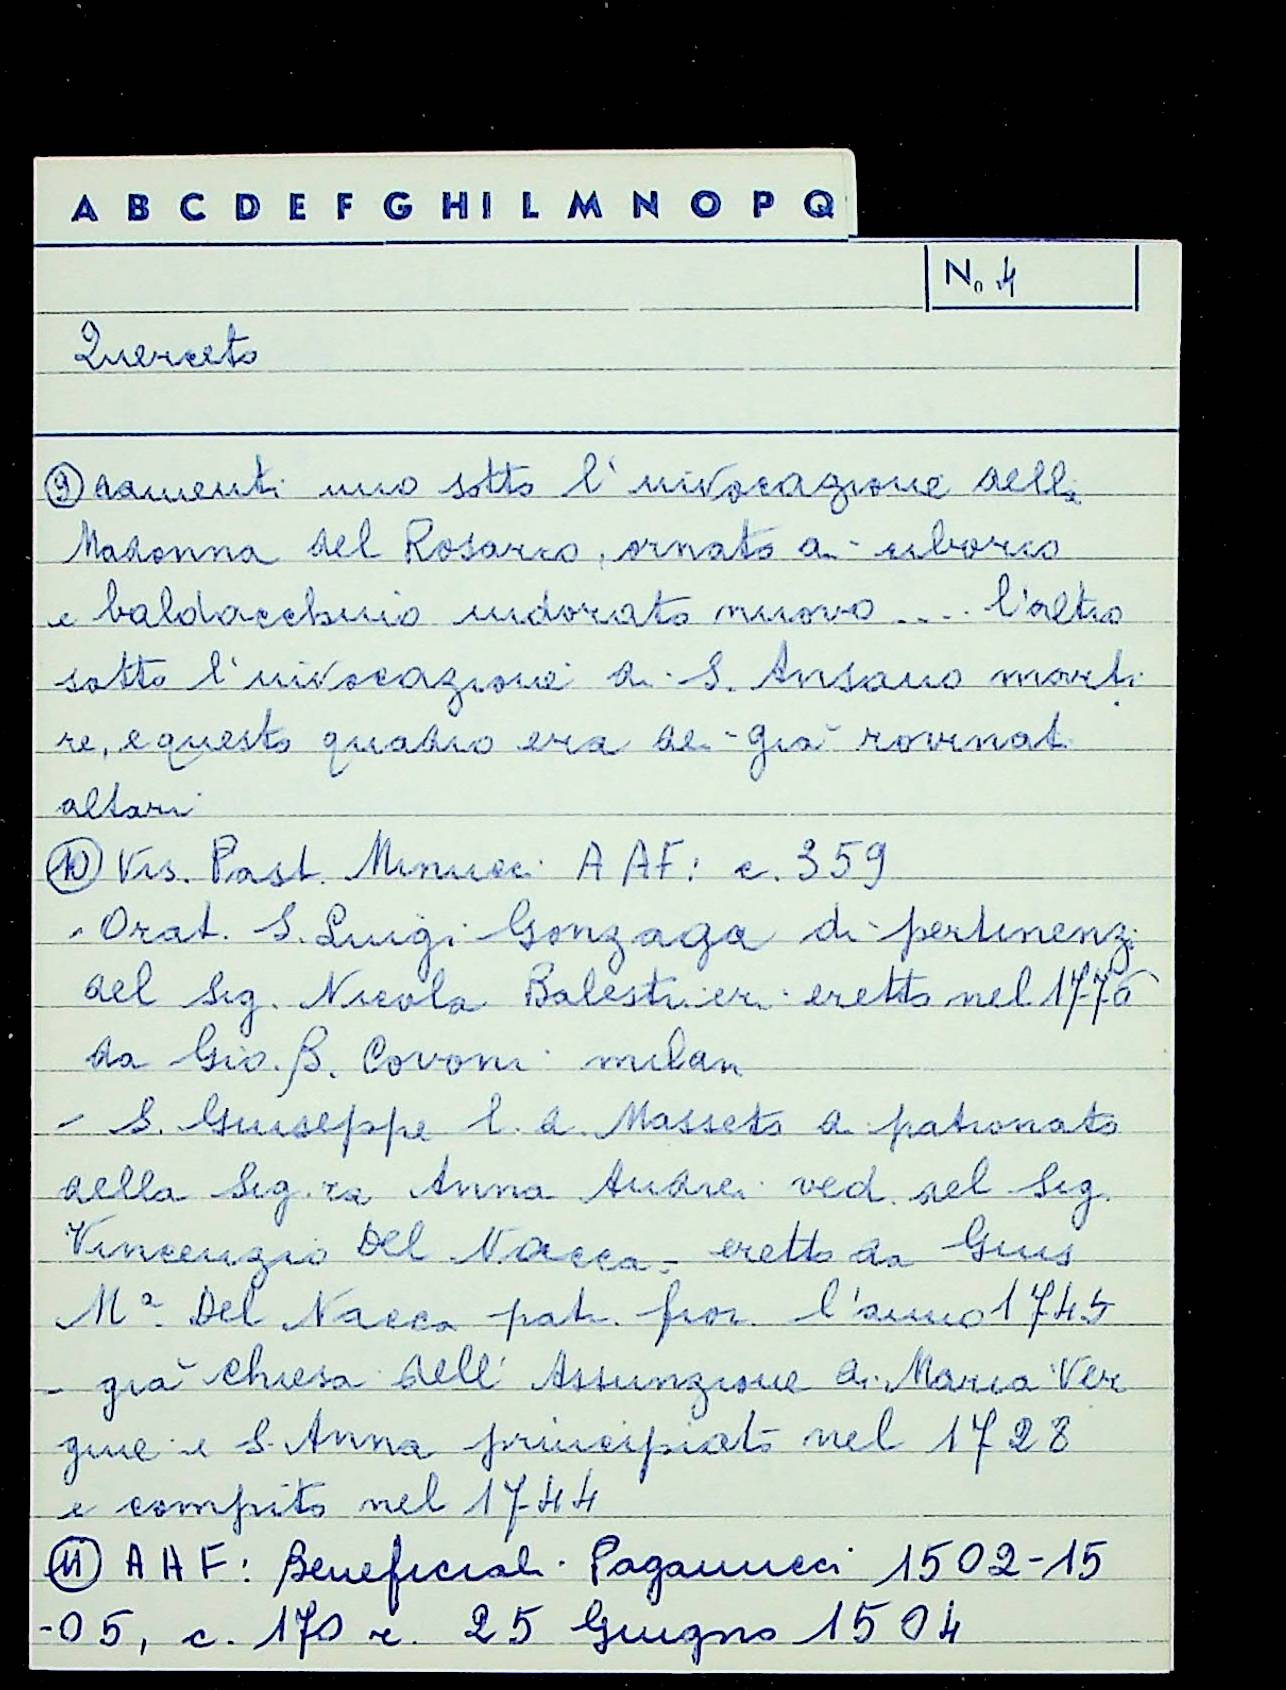 A B C D E F G H I L M N O P Q
N. 4
Querceto
⑨ damenti uno sotto l'invocazione della
Madonna del Rosario, ornato di ciborio
e baldacchino indorato nuovo .... l'altro
sotto l'invocazione di S. Ansano marti
re, e questo quadro era di già rovinat
altari
⑩ Vis. Past. Minucci AAF: c. 359
- Orat. S. Luigi Gonzaga di pertinenz
del Sig. Nicola Balestrieri eretto nel 1776
da Gio. B. Covoni milan
- S. Giuseppe l. d. Masseto di patronato
della Sig.ra Anna Andrei ved. del Sig.
Vincenzio Del Nacca - eretto da Gius
Mª. Del Nacca patr. fior. l'anno 1745
- già chiesa dell'Assunzione di Maria Ver
gine e S. Anna principiato nel 1728
e compito nel 1744
⑪ AAF: Beneficiali Paganucci 1502-15
-05, c. 170 r. 25 Giugno 1504